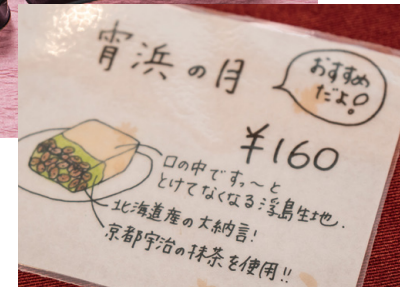 宵浜の月
おすすめ
だよ!
¥160
口の中ですっ〜と
とけてなくなる浮島生地.
北海道産の大納言!
京都宇治の抹茶を使用!!